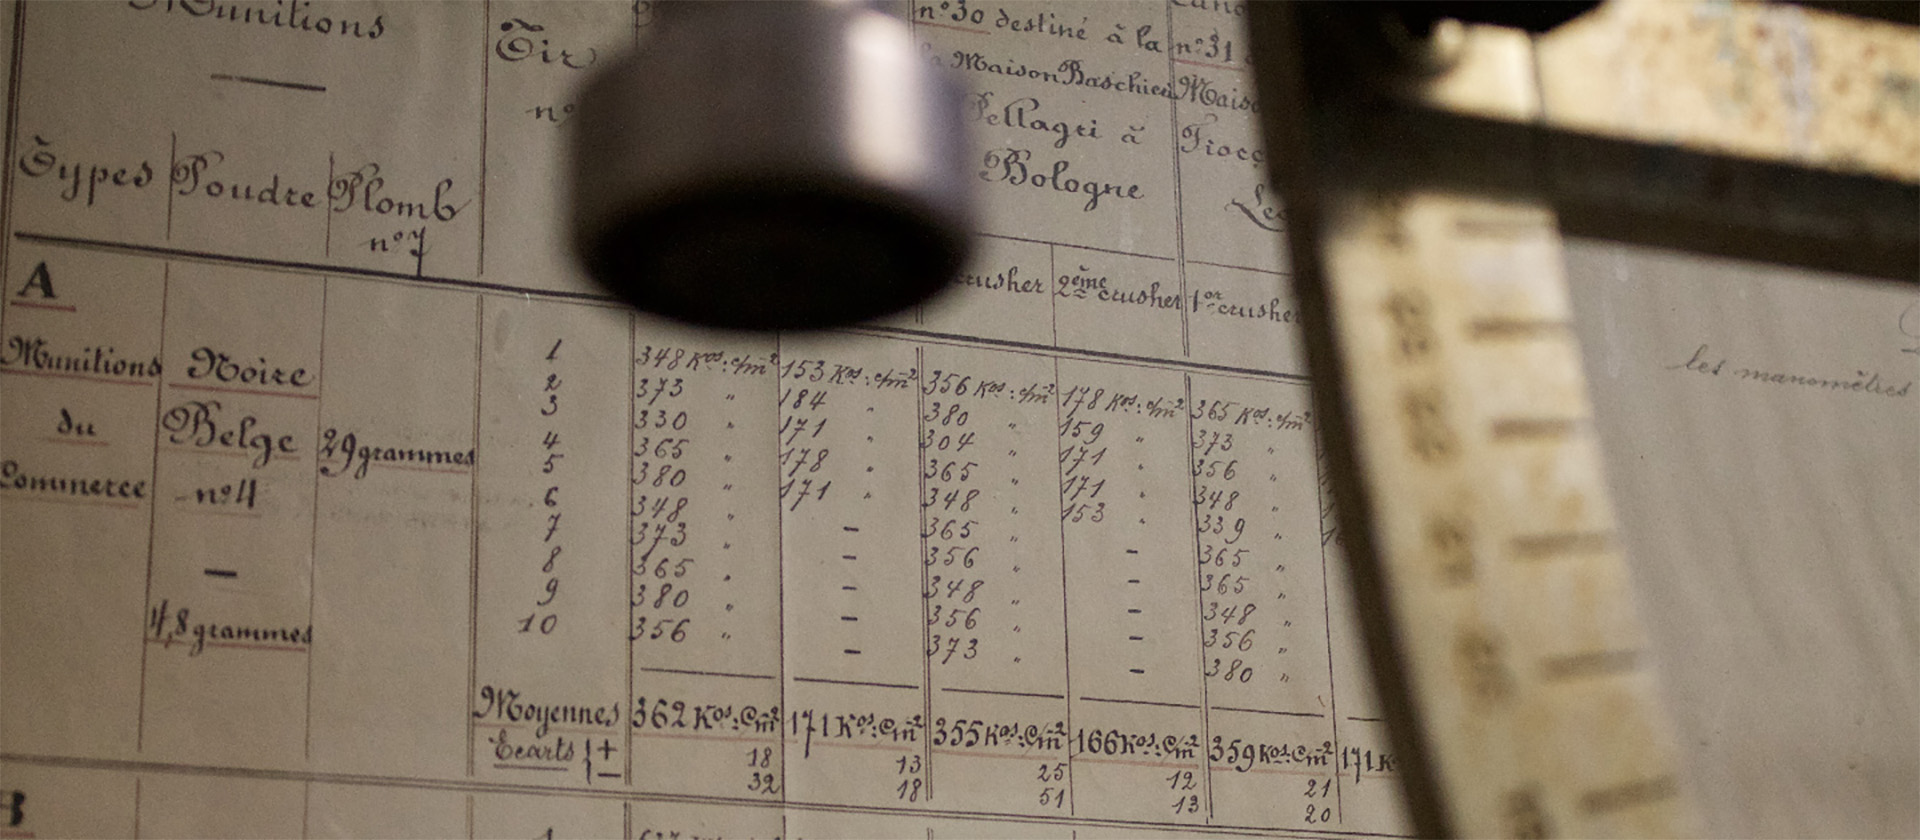 Munitions
Tir
n°
n°30 destiné à la
la Maison Baschieri
Pellagri à
Bologne
n°31
Types Poudre Plomb
n°7
crusher 2ème crusher 1er crusher
A
Munitions
du
Commerce
Noire
Belge
n°4
—
4,8 grammes
29 grammes
1 348 Kos:c/m² 153 Kos:c/m² 356 Kos:c/m² 178 Kos:c/m² 365 Kos:c/m²
2 373 " 184 " 380 " 159 " 373 "
3 330 " 171 " 304 " 171 " 356 "
4 365 " 178 " 365 " 171 " 348 "
5 380 " 171 " 348 " 153 " 339 "
6 348 " – 365 " – 365 "
7 373 " – 356 " – 365 "
8 365 " – 348 " – 348 "
9 380 " – 356 " – 356 "
10 356 " – 373 " – 380 "
Moyennes 362 Kos:c/m² 171 Kos:c/m² 355 Kos:c/m² 166 Kos:c/m² 359 Kos:c/m² 171 K
Ecarts { + 18 13 25 12 21
– 32 18 51 13 20
B
1
les manomètres